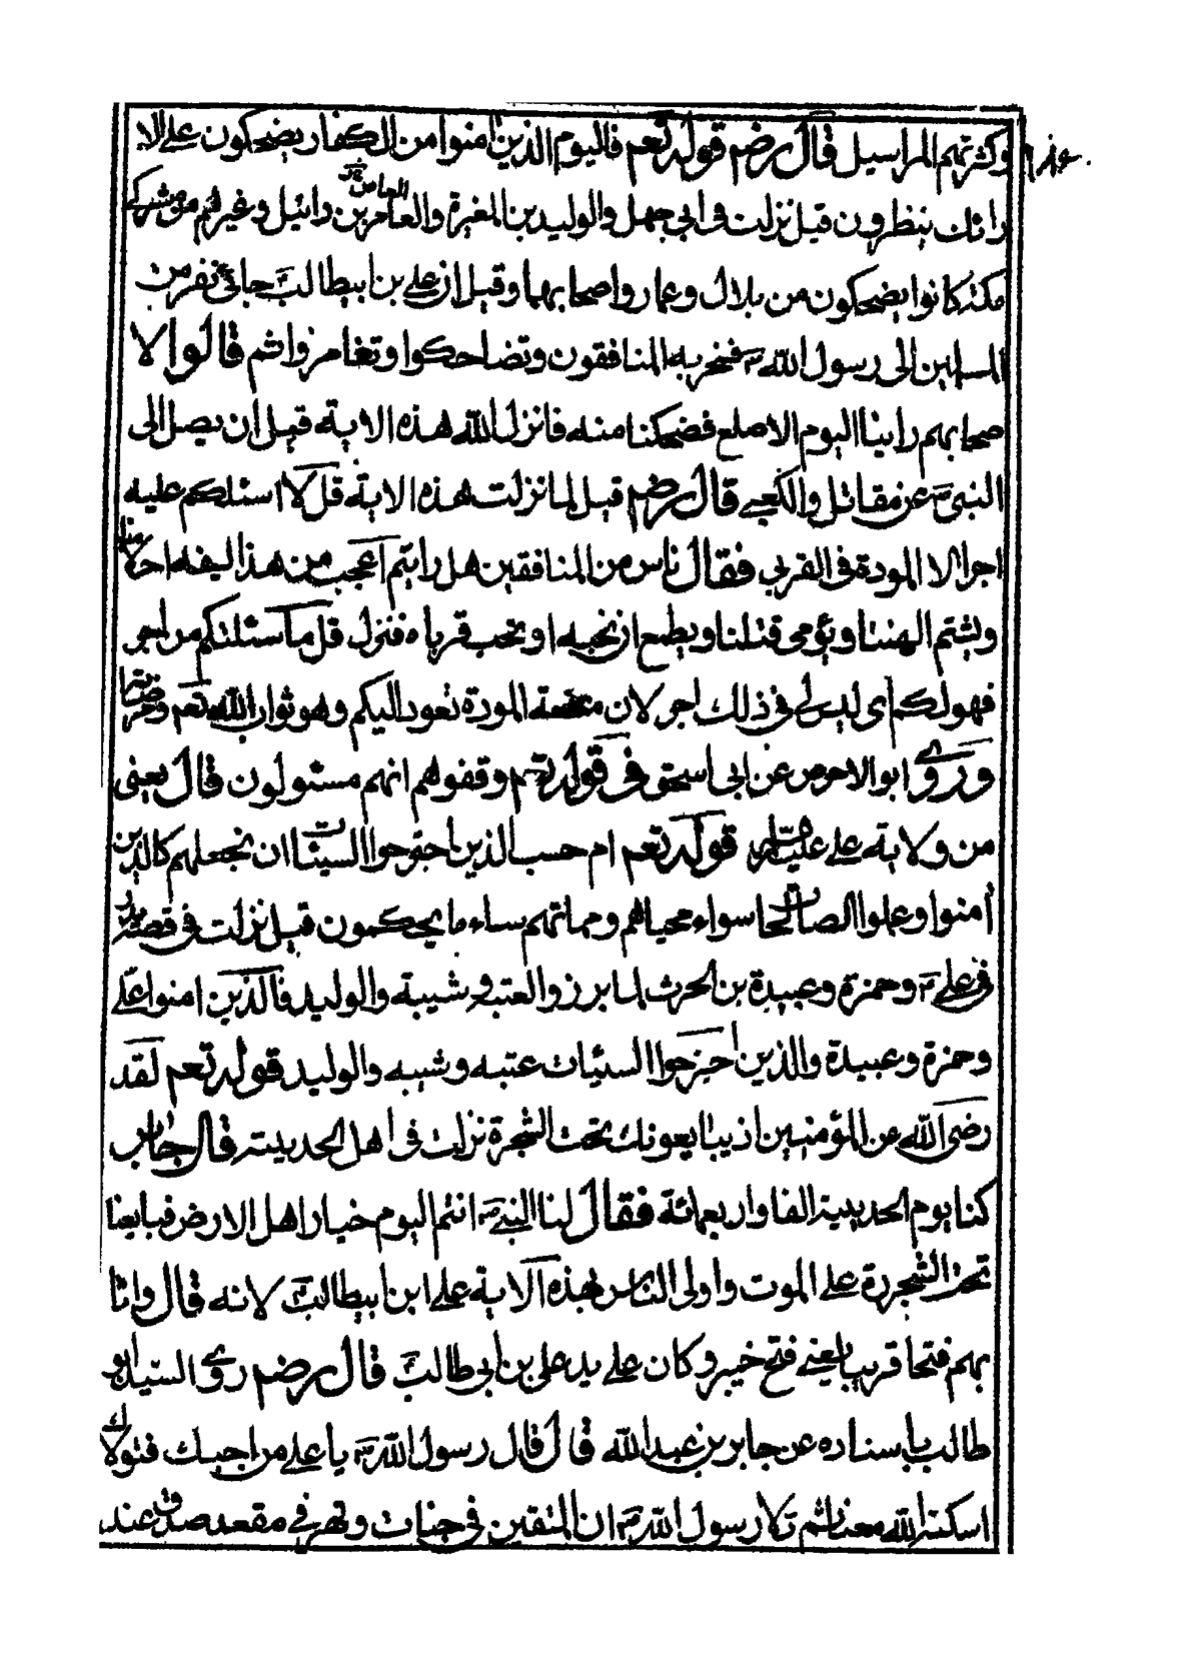 وكثرتهم المراسيل قال رضم قوله تعم فاليوم الذين امنوا من الكفار يضحكون على الا
رائك ينظرون قيل نزلت في ابي جهل والوليد بن المغيرة والعاص بن وائيل وغيرهم من مشركي
مكة كانوا يضحكون من بلال وعمار واصحابهما وقيل ان علي بن ابيطالب جائي نفر من
المسلمين الى رسول الله ص فسخر به المنافقون وتضاحكوا وتغامزوا ثم قالوا لا
صحابهم راينا اليوم الاصلع فضحكنا منه فانزل الله هذه الاية قبل ان يصل الى
النبي ص عن مقاتل والكلبي قال رضم قيل لما نزلت هذه الاية قل لا اسئلكم عليه
اجرا الا المودة في القربى فقال ناس من المنافقين هل رايتم اعجب من هذا يسفه احلامنا
ويشتم الهتنا ويؤمي قتلنا ويطمع ان نحبه او نحب قرباه فنزل قل ما سئلتكم من اجر
فهو لكم اي ليس لي في ذلك اجر لان منفعة المودة تعود اليكم وهو ثواب الله تعم
وروى ابو الاحوص عن ابي اسحق في قوله تعم وقفوهم انهم مسئولون قال يعني
من ولاية علي عليه السلام قوله تعم ام حسب الذين اجترحوا السيئات ان نجعلهم كالذين
امنوا وعملوا الصالحات سواء محياهم ومماتهم ساء ما يحكمون قيل نزلت في قصة بدر
في علي ع وحمزة وعبيدة بن الحرث لما برزوا لعتبه وشيبة والوليد فالذين امنوا علي
وحمزة وعبيدة والذين اجترحوا السئيات عتبه وشيبه والوليد قوله تعم لقد
رضي الله عن المؤمنين اذ يبايعونك تحت الشجرة نزلت في اهل الحديبية قال جابر
كنا يوم الحديبية الفا واربعمائة فقال لنا النبي ص انتم اليوم خيار اهل الارض فبايعنا
تحت الشجرة على الموت واولى الناس بهذه الاية علي ابن ابيطالب ع لانه قال واثا
بهم فتحا قريبا يعني فتح خيبر وكان على يد علي بن ابي طالب ع قال رضم روى السيد ابو
طالب باسناده عن جابر بن عبد الله قال قال رسول الله ص يا علي من احبك وتولاك
اسكنه الله معنا ثم تلا رسول الله ص ان المتقين في جنات ونهر في مقعد صدق عند